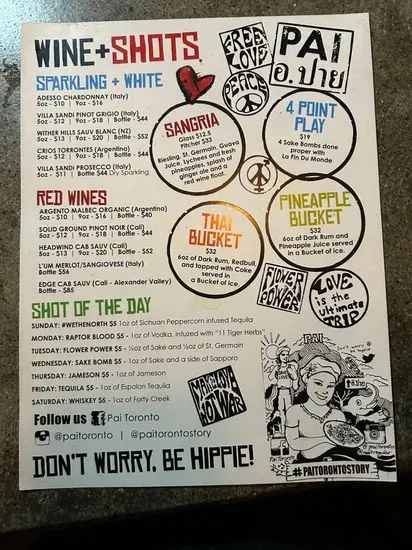 WINE+SHOTS
SPARKLING + WHITE
ADESSO CHARDONNAY (Italy)
5oz - $10 | 9oz - $16
VILLA SANDI PINOT GRIGIO (Italy)
5oz - $12 | 9oz - $18 | Bottle - $44
WITHER HILLS SAUV BLANC (NZ)
5oz - $13 | 9oz - $20 | Bottle - $52
CRIOS TORRONTES (Argentina)
5oz - $12 | 9oz - $18 | Bottle - $44
VILLA SANDI PROSECCO (Italy)
5oz - $11 | Bottle - $44 Dry Sparkling
RED WINES
ARGENTO MALBEC ORGANIC (Argentina)
5oz - $10 | 9oz - $16 | Bottle - $40
SOLID GROUND PINOT NOIR (Cali)
5oz - $12 | 9oz - $18 | Bottle - $44
HEADWIND CAB SAUV (Cali)
5oz - $13 | 9oz - $20 | Bottle - $52
L'UM MERLOT/SANGIOVESE (Italy)
Bottle $56
EDGE CAB SAUV (Cali - Alexander Valley)
Bottle - $85
FREE
LOVE
PEACE
PAI
อ.ปาย
SANGRIA
Glass $12.5
Pitcher $33
Riesling, St. Germain, Guava
Juice, Lychees and fresh
pineapples, splash of
ginger ale and a
red wine float.
4 POINT
PLAY
$19
4 Sake Bombs done
proper with
La Fin Du Monde
THAI
BUCKET
$32
6oz of Dark Rum, Redbull,
and topped with Coke
served in a
Bucket of Ice.
PINEAPPLE
BUCKET
$32
6oz of Dark Rum and
Pineapple Juice served
in a Bucket of Ice.
FLOWER
POWER
LOVE
is the
ultimate
TRIP
SHOT OF THE DAY
SUNDAY: #WETHENORTH $5 1oz of Sichuan Peppercorn infused Tequila
MONDAY: RAPTOR BLOOD $5 - 1oz of Vodka, infused with "11 Tiger Herbs"
TUESDAY: FLOWER POWER $5 - ½oz of Sake and ½oz of St. Germain
WEDNESDAY: SAKE BOMB $5 - 1oz of Sake and a side of Sapporo
THURSDAY: JAMESON $5 - 1oz of Jameson
FRIDAY: TEQUILA $5 - 1oz of Espolon Tequila
SATURDAY: WHISKEY $5 - 1oz of Forty Creek
MAKE LOVE
NO WAR
Follow us f Pai Toronto
@paitoronto | @paitorontostory
DON'T WORRY, BE HIPPIE!
PAI
Don't worry
be hippie
Pai Toronto
@paitoronto
#PAITORONTOSTORY